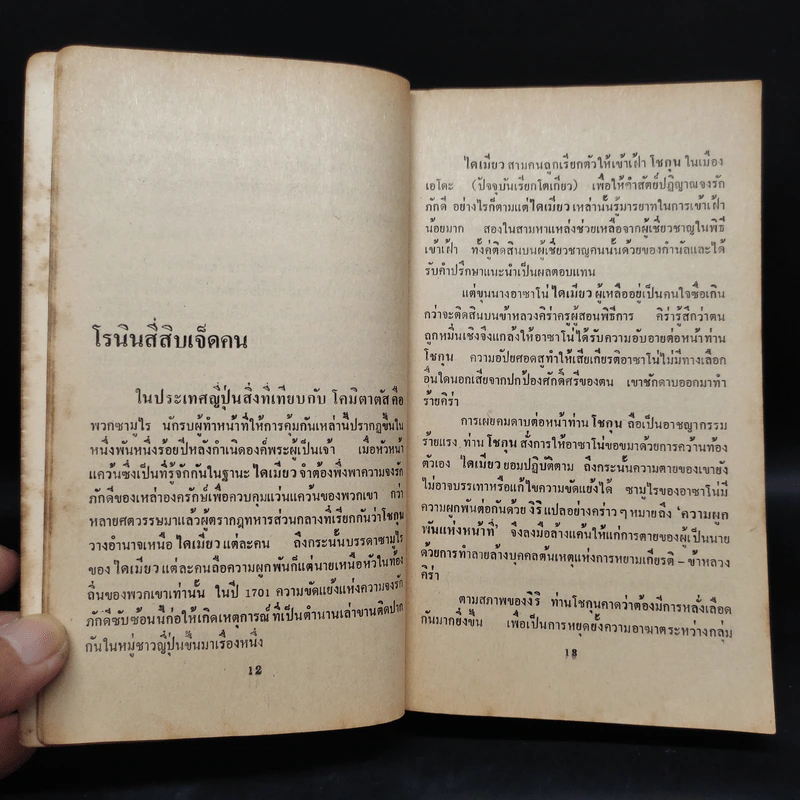 โรนินสี่สิบเจ็ดคน
ในประเทศญี่ปุ่นสิ่งที่เทียบกับ โคมิตาตัส คือ
พวกซามูไร นักรบผู้ทำหน้าที่ให้การคุ้มกันเหล่านี้ปรากฏขึ้นใน
หนึ่งพันหนึ่งร้อยปีหลังกำเนิดองค์พระผู้เป็นเจ้า เมื่อหัวหน้า
แคว้นซึ่งเป็นที่รู้จักกันในฐานะ ไดเมียว จำต้องพึ่งพาความจงรัก
ภักดีของเหล่าองครักษ์เพื่อควบคุมแว่นแคว้นของพวกเขา กว่า
หลายศตวรรษมาแล้วผู้ตรากฎทหารส่วนกลางที่เรียกกันว่าโชกุน
วางอำนาจเหนือ ไดเมียว แต่ละคน ถึงกระนั้นบรรดาซามูไร
ของ ไดเมียว แต่ละคนลือความผูกพันก็แต่นายเหนือหัวในท้อง
ถิ่นของพวกเขาเท่านั้น ในปี 1701 ความขัดแย้งแห่งความจงรัก
ภักดีซับซ้อนนี้ก่อให้เกิดเหตุการณ์ ที่เป็นตำนานเล่าขานติดปาก
กันในหมู่ชาวญี่ปุ่นขึ้นมาเรื่องหนึ่ง
12
ไดเมียว สามคนถูกเรียกตัวให้เข้าเฝ้า โชกุน ในเมือง
เอโดะ (ปัจจุบันเรียกโตเกียว) เพื่อให้คำสัตย์ปฏิญาณจงรัก
ภักดี อย่างไรก็ตามแต่ ไดเมียว เหล่านั้นรู้มารยาทในการเข้าเฝ้า
น้อยมาก สองในสามหาแหล่งช่วยเหลือจากผู้เชี่ยวชาญในพิธี
เข้าเฝ้า ทั้งคู่ติดสินบนผู้เชี่ยวชาญคนนั้นด้วยของกำนัลและได้
รับคำปรึกษาแนะนำเป็นผลตอบแทน
แต่ขุนนางอาซาโน่ ไดเมียว ผู้เหลืออยู่เป็นคนใจซื่อเกิน
กว่าจะติดสินบนข้าหลวงคิร่าครูผู้สอนพิธีการ คิร่ารู้สึกว่าตน
ถูกหมิ่นเชิงจึงแกล้งให้อาซาโน่ได้รับความอับอายต่อหน้าท่าน
โชกุน ความอัปยศอดสูทำให้เสียเกียรติอาซาโน่ไม่มีทางเลือก
อื่นใดนอกเสียจากปกป้องศักดิ์ศรีของตน เขาชักดาบออกมาทำ
ร้ายคิร่า
การเผยคมดาบต่อหน้าท่าน โชกุน ถือเป็นอาชญากรรม
ร้ายแรง ท่าน โชกุน สั่งการให้อาซาโน่ขอขมาด้วยการคว้านท้อง
ตัวเอง ไดเมียว ยอมปฏิบัติตาม ถึงกระนั้นความตายของเขายัง
ไม่อาจบรรเทาหรือแก้ไขความขัดแย้งได้ ซามูไรของอาซาโน่มี
ความผูกพันต่อกันด้วย งิริ แปลอย่างคร่าว ๆ หมายถึง 'ความผูก
พันแห่งหน้าที่' จึงลงมือล้างแค้นให้แก่การตายของผู้เป็นนาย
ด้วยการทำลายล้างบุคคลต้นเหตุแห่งการหยามเกียรติ – ข้าหลวง
คิร่า
ตามสภาพของงิริ ท่านโชกุนคาดว่าต้องมีการหลั่งเลือด
กันมากยิ่งขึ้น เพื่อเป็นการหยุดยั้งความอาฆาตระหว่างกลุ่ม
13